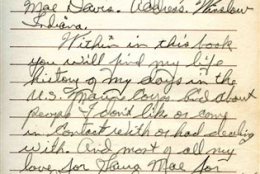 Mae Davis. Address. Winslow
Indiana.
Within in this book
you will find my life
history of my days in the
U.S. Marine Corps. And about
people I don't like or come
in contact with or had dealing
with. And most of all my
love for Laura Mae for